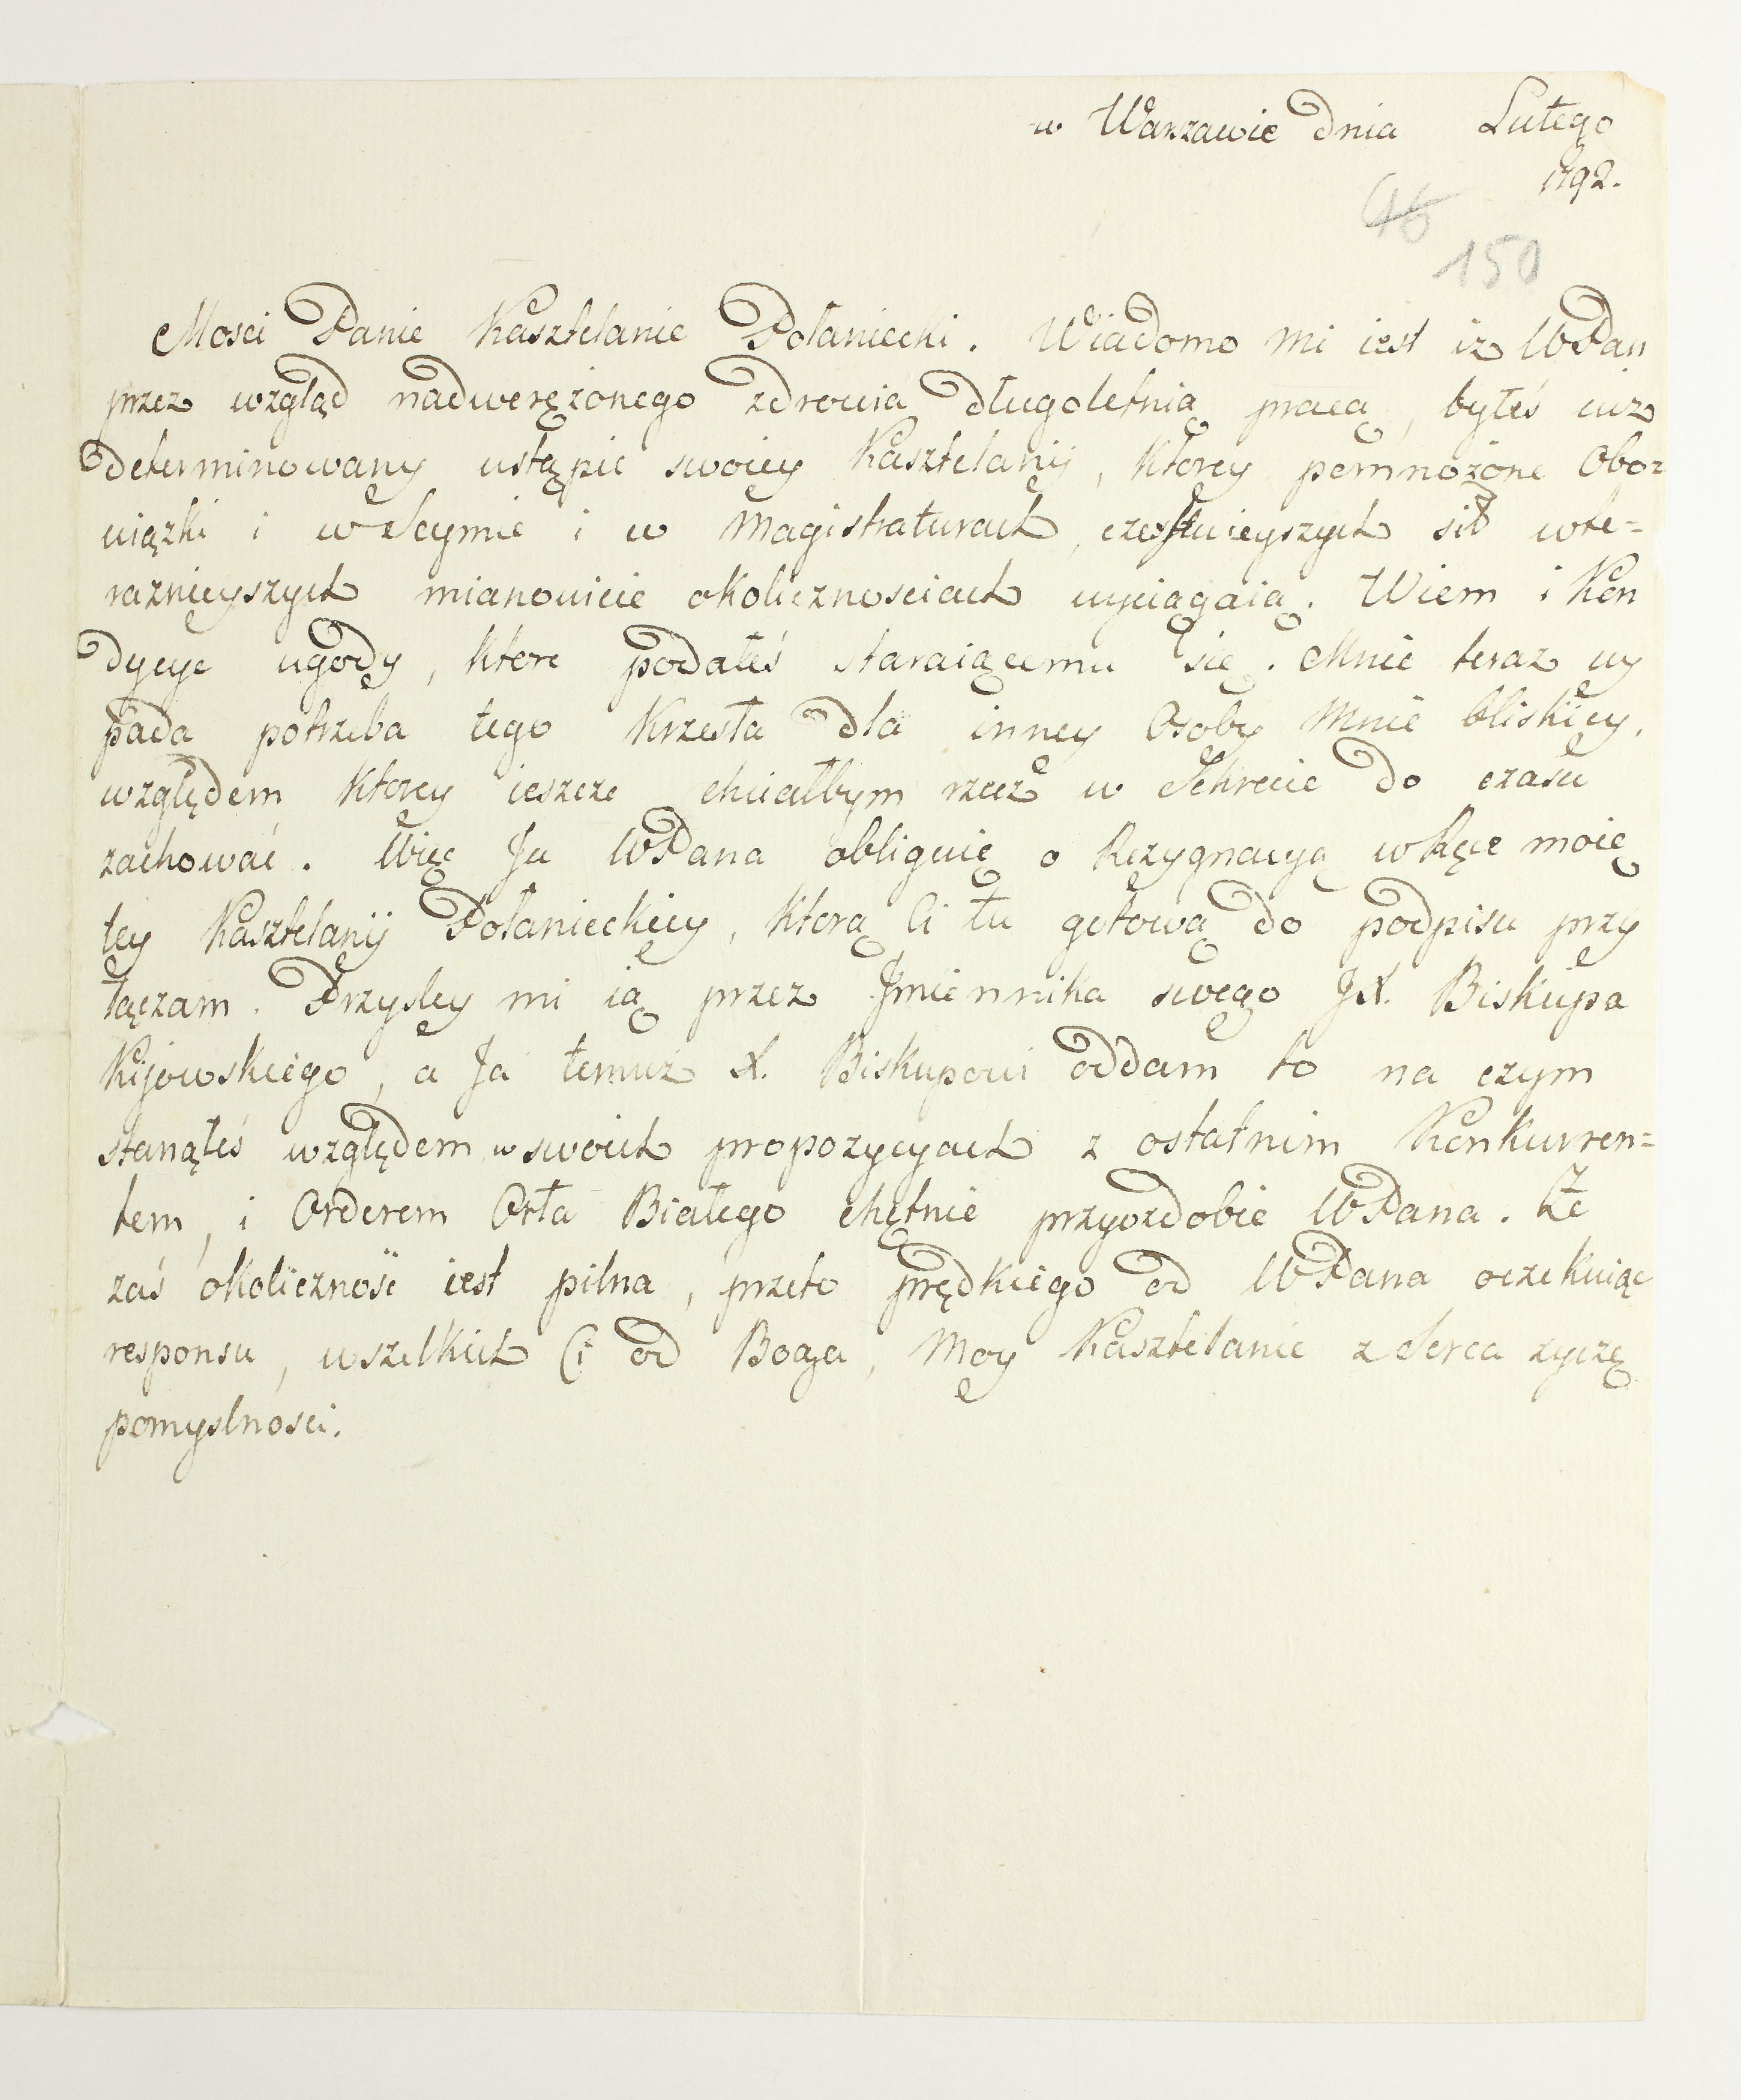 w Warszawie dnia Lutego
1792.
46
150
Mosci Panie Kasztelanie Połaniecki. Wiadomo mi iest iz WPan
przez wzgląd nadwerężonego zdrowia długoletnią pracą, byłeś iuz
determinowany ustąpic swoiey Kasztelanij, ktorey pomnożone Obo=
wiązki i w Seymie i w Magistraturach, czerstwieyszych sił w te=
raznieyszych mianowicie okolicznosciach wyciągaią. Wiem i Kon
dycye ugody, ktore podałeś staraiącemu się. Mnie teraz wy
pada potrzeba tego Krzesła dla inney Osoby Mnie bliskiey,
względem ktorey ieszcze chciałbym rzecz w Sekrecie do czasu
zachować. Więc Ja WPana obliguię o Rezygnacyą w Ręce moię
tey Kasztelanij Połanieckiey, ktorą Ci tu gotową do podpisu przy
łączam. Przysley mi ią przez Imiennika swego JX. Biskupa
Kijowskiego, a Ja temuż X. Biskupowi oddam to na czym
stanąłeś względem w swoich propozycyach z ostatnim Konkurren=
tem, i Orderem Orła Białego chętnie przyozdobie WPana. Że
zaś okoliczność iest pilna, przeto prędkiego od WPana oczekuiąc
responsu, wszelkich Ci od Boga, Moy Kasztelanie z Serca zyczę
pomyslnosci.